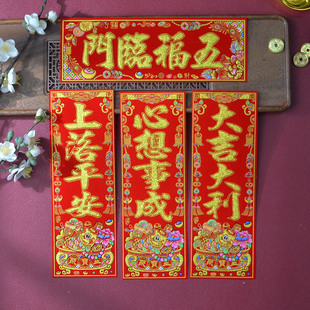 五福臨門
大吉大利
心想事成
上落平安